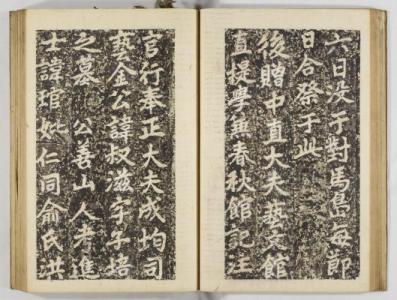 六日没于對馬島每節
日合祭于此
後贈中直大夫藝文館
直提學兼春秋館記注
官行奉正大夫成均司
藝金公諱叔滋字子培
之墓 公善山人考進
士諱琯妣仁同俞氏洪